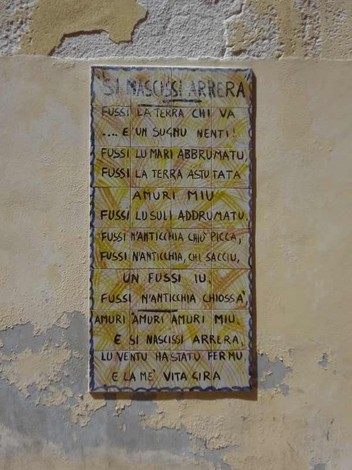 SI NASCISSI ARRERA
FUSSI LA TERRA CHI VA
.... E UN SUGNU NENTI!
FUSSI LU MARI ABBRUMATU,
FUSSI LA TERRA ASTUTATA
AMURI MIU
FUSSI LU SULI ADDRUMATU
FUSSI N'ANTICCHIA CHIÙ PICCA,
FUSSI N'ANTICCHIA, CHI SACCIU,
UN FUSSI IU,
FUSSI N'ANTICCHIA CHIOSSÀ,
AMURI AMURI AMURI MIU,
E SI NASCISSI ARRERA,
LU VENTU HA STATU FERMU
E LA ME' VITA GIRA